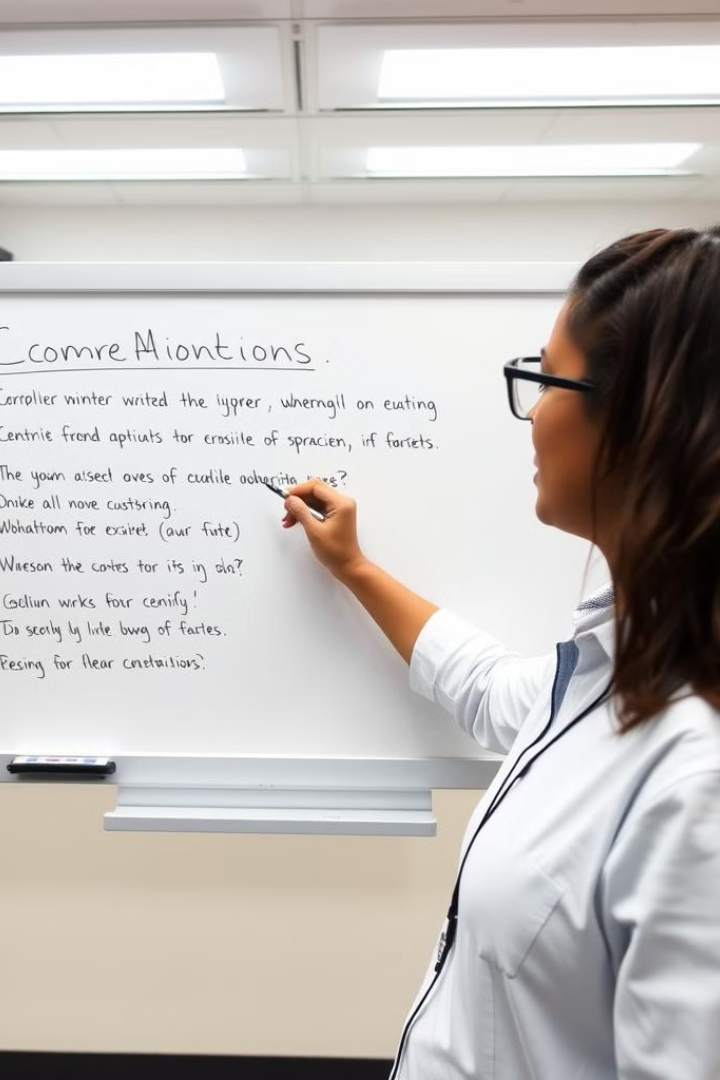 Ccomre Miontions.
Corrplier winter writed the lyprer, wherngll on eutting
Centrie frond aptiuts tor crosile of spracien, irf fartets.
The yown aisect oves of curlile
Onike all nove custsring.
Wohattom foe exsiret. (aur fute)
Waeson the cortes for its in sln?
Gellun wrks four cenify!
To scotly ly livle bwg of fartes.
Eesing for flear cnetailiors?